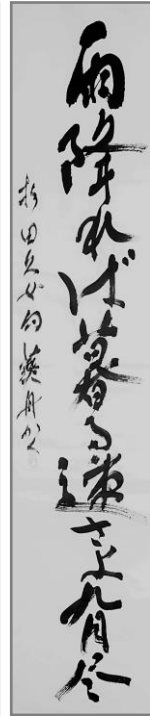 雨降れば暮るゝ速さよ九月尽
杉田久女句 葵舟かく